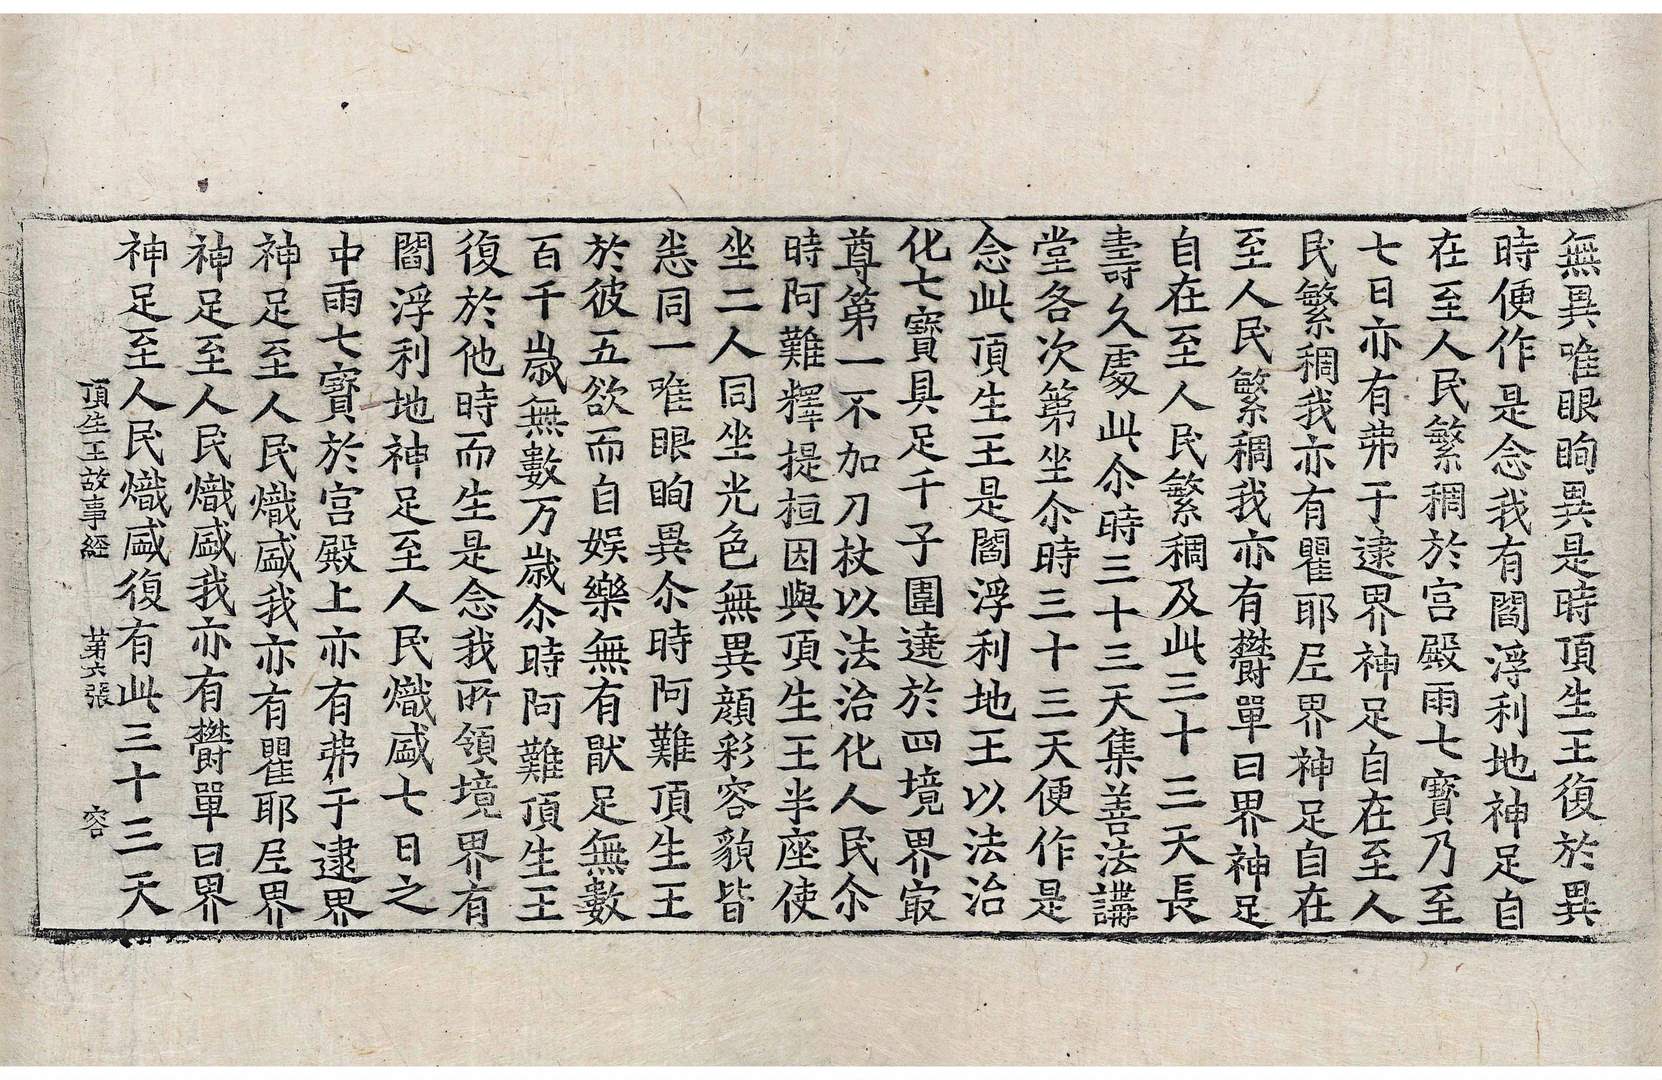 無異唯眼眴異是時頂生王復於異
時便作是念我有閻浮利地神足自
在至人民繁稠於宮殿雨七寶乃至
七日亦有弗于逮界神足自在至人
民繁稠我亦有瞿耶尼界神足自在
至人民繁稠我亦有欝單曰界神足
自在至人民繁稠及此三十三天長
壽久處此尒時三十三天集善法講
堂各次第坐尒時三十三天便作是
念此頂生王是閻浮利地王以法治
化七寶具足千子圍遶於四境界㝡
尊第一不加刀杖以法治化人民尒
時阿難釋提桓因與頂生王半座使
坐二人同坐光色無異顔彩容貌皆
悉同一唯眼眴異尒時阿難頂生王
於彼五欲而自娛樂無有猒足無數
百千歲無數万歲尒時阿難頂生王
復於他時而生是念我所領境界有
閻浮利地神足至人民熾盛七日之
中雨七寶於宮殿上亦有弗于逮界
神足至人民熾盛我亦有瞿耶尼界
神足至人民熾盛我亦有欝單曰界
神足至人民熾盛復有此三十三天
頂生王故事經 第六張 容